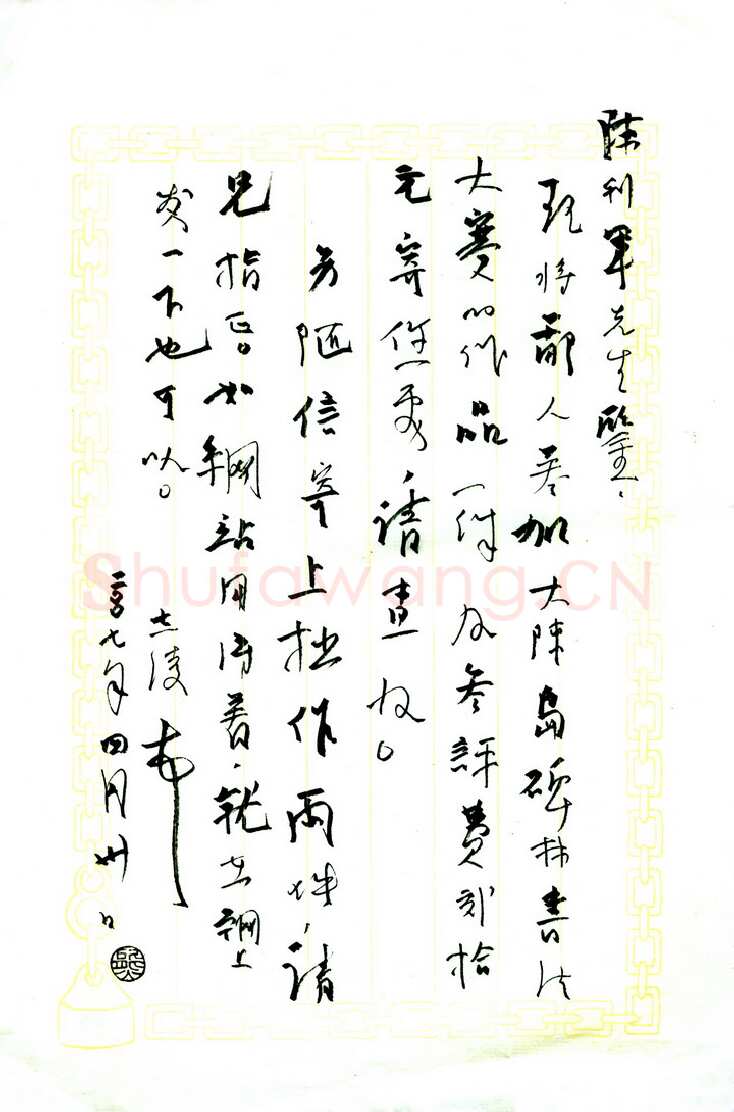 陈利军先生鉴：
现将鄙人参加大陈岛碑林书法
大赛的作品一件及参评费贰拾
元寄您处，请查收。
另随信寄上拙作两件，请
兄指正。如网站用得着，就在网上
发一下也可以。
志凌
二〇〇七年四月卅日
Shufawang.CN